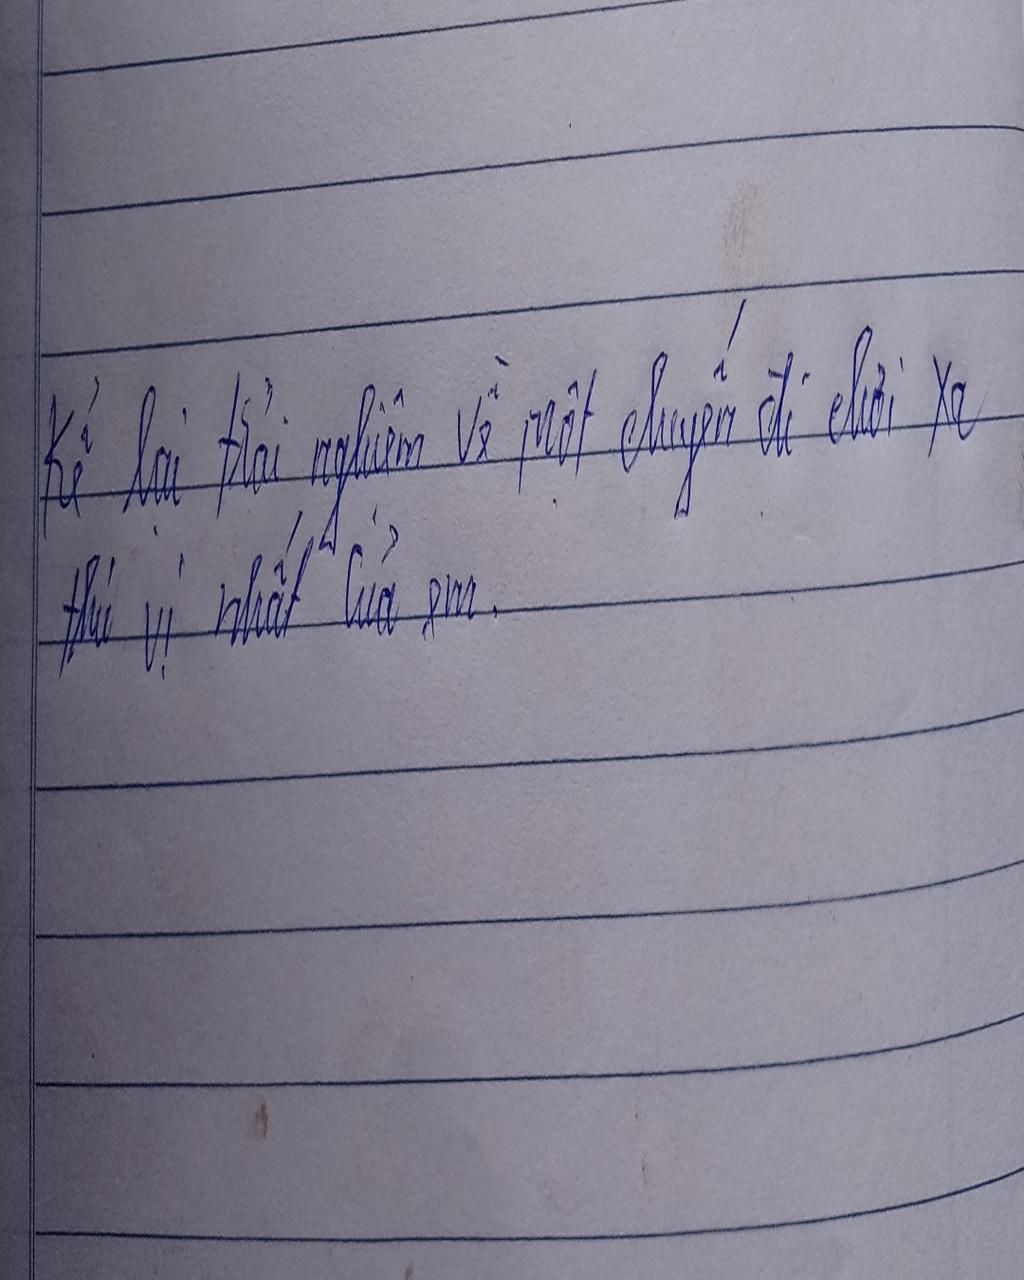 Kể lại trải nghiệm về một chuyến đi chơi xa
thú vị nhất của em.